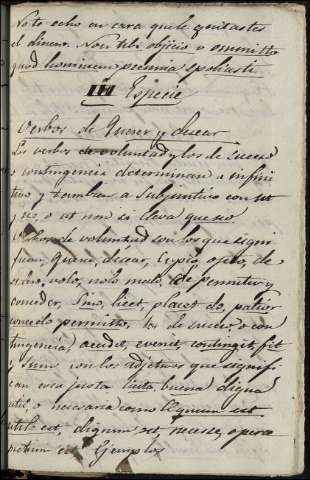 No te echo en cara que le quitastes
el dinero. Non tibi objicio o ommitto
quod hominem pecunia spoliasti
III Especie
Verbos de Querer y desear
Los verbos de voluntad y los de suceso
o contingencia determinan a infini
tivo y tambien a subjuntivo con ut
o ut non si lleva que no
Verbos de voluntad son los que signi
fican, querer, desear, Cupio, opto, de
sidero, volo, nolo, malo, de permitir y
conceder, Sino, licet, placet, do, patior
concedo permitto, los de suceso o con
tingencia, accidit, evenit, contingit, fit
y Sum con los adjetivos que signifi
can cosa justa licita, buena digna
util, o necesaria como Æquum est
utile est, dignum est, necesse, opera
pretium est Ejemplos